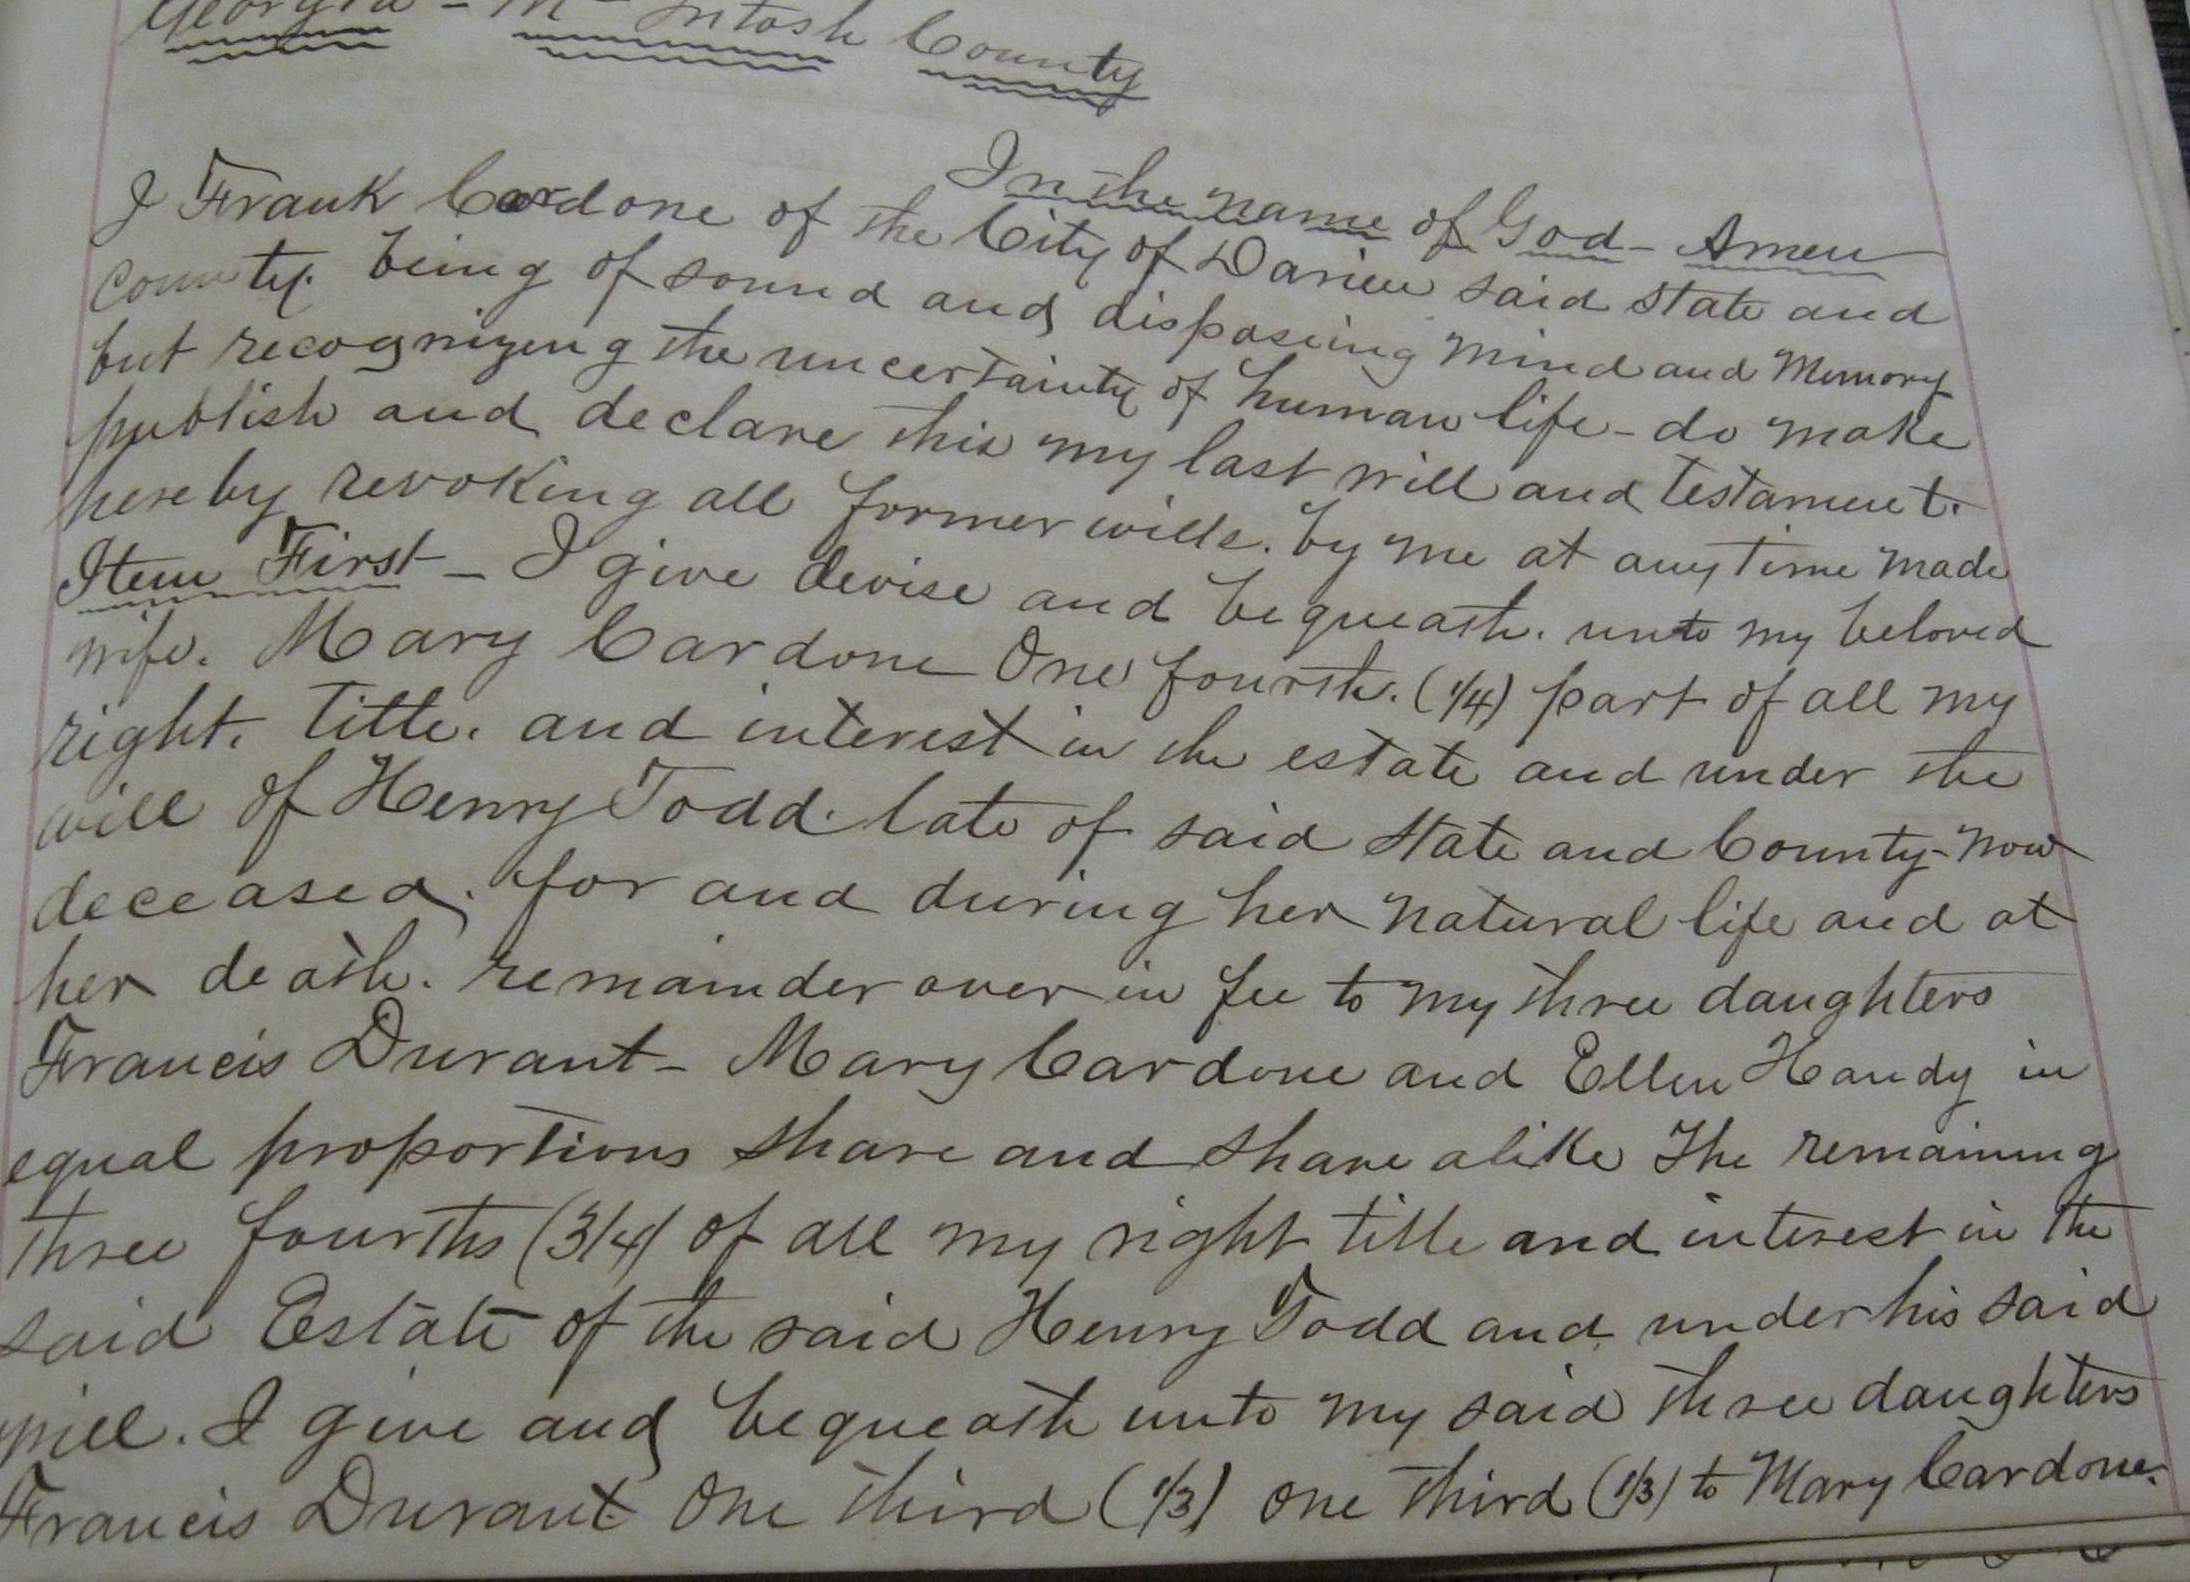 Georgia - McIntosh County
In the name of God - Amen
I Frank Cardone of the City of Darien said state and
County. being of sound and disposing mind and memory
but recognizing the uncertainty of human life - do make
publish and declare this my last will and testament.
hereby revoking all former wills. by me at any time made
Item First - I give devise and bequeath. unto my beloved
wife. Mary Cardone One fourth. (1/4) part of all my
right. title. and interest in the estate and under the
will of Henry Todd. late of said state and County - now
deceased. for and during her natural life and at
her death. remainder over in fee to my three daughters
Francis Durant - Mary Cardone and Ellen Handy in
equal proportions share and share alike The remaining
three fourths (3/4) of all my right title and interest in the
said Estate of the said Henry Todd and under his said
will. I give and bequeath unto my said three daughters
Francis Durant One third (1/3) one third (1/3) to Mary Cardone.